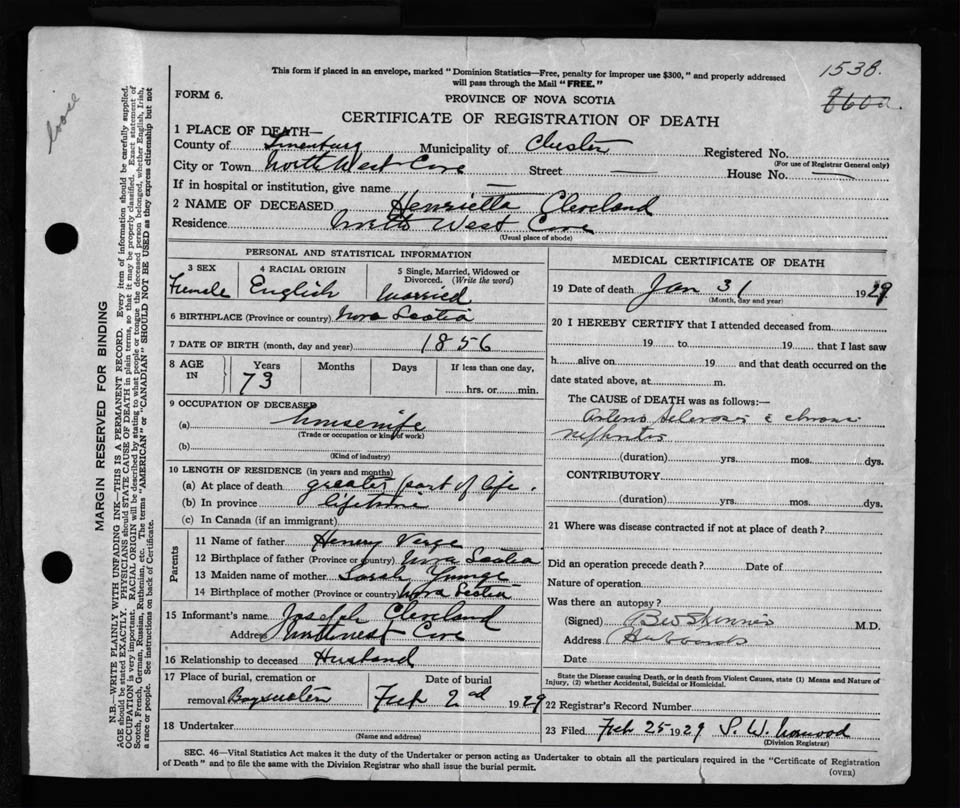 1538.
This form if placed in an envelope, marked "Dominion Statistics—Free, penalty for improper use $300," and properly addressed
will pass through the Mail "FREE."
8600.
loose
FORM 6.
PROVINCE OF NOVA SCOTIA
CERTIFICATE OF REGISTRATION OF DEATH
1 PLACE OF DEATH—
County of Lunenburg Municipality of Chester Registered No.
(For use of Registrar General only)
City or Town North West Cove Street — House No. —
If in hospital or institution, give name —
2 NAME OF DECEASED Henrietta Cleveland
Residence North West Cove
(Usual place of abode)
PERSONAL AND STATISTICAL INFORMATION
3 SEX 4 RACIAL ORIGIN 5 Single, Married, Widowed or
Divorced. (Write the word)
Female English Married
6 BIRTHPLACE (Province or country) Nova Scotia
7 DATE OF BIRTH (month, day and year) 1856
8 AGE
IN
Years Months Days If less than one day,
73 hrs. or min.
9 OCCUPATION OF DECEASED
(a) housewife
(Trade or occupation or kind of work)
(b)
(Kind of industry)
10 LENGTH OF RESIDENCE (in years and months)
(a) At place of death greater part of life.
(b) In province lifetime
(c) In Canada (if an immigrant)
Parents
11 Name of father Henery Verge
12 Birthplace of father (Province or country) Nova Scotia
13 Maiden name of mother Sarah Younge
14 Birthplace of mother (Province or country) Nova Scotia
15 Informant's name Joseph Cleveland
Address Northwest Cove
16 Relationship to deceased Husband
17 Place of burial, cremation or Date of burial
removal Bayswater Feb 2nd 1929
18 Undertaker
(Name and address)
MEDICAL CERTIFICATE OF DEATH
19 Date of death Jan 31 1929
(Month, day and year)
20 I HEREBY CERTIFY that I attended deceased from
19 to 19 that I last saw
h alive on 19 and that death occurred on the
date stated above, at m.
The CAUSE of DEATH was as follows:
Arterio Sclerosis & chronic
nephritis
(duration) yrs. mos. dys.
CONTRIBUTORY
(duration) yrs. mos. dys.
21 Where was disease contracted if not at place of death?
Did an operation precede death? Date of
Nature of operation
Was there an autopsy?
(Signed) M.D.
Address Hubbards
Date
State the Disease causing Death, or in death from Violent Causes, state (1) Means and Nature of
Injury, (2) whether Accidental, Suicidal or Homicidal.
22 Registrar's Record Number
23 Filed Feb 25 1929 S. W.
(Division Registrar)
SEC. 46—Vital Statistics Act makes it the duty of the Undertaker or person acting as Undertaker to obtain all the particulars required in the "Certificate of Registration
of Death" and to file the same with the Division Registrar who shall issue the burial permit.
(OVER)
MARGIN RESERVED FOR BINDING
N.B.—WRITE PLAINLY WITH UNFADING INK—THIS IS A PERMANENT RECORD. Every item of information should be carefully supplied.
AGE should be stated EXACTLY. PHYSICIANS should STATE CAUSE OF DEATH in plain terms, so that it may be properly classified. Exact statement of
OCCUPATION is very important. RACIAL ORIGIN will be described by stating to what people or tongue the deceased person belonged, whether English, Irish,
Scotch, French, German, Russian, Ruthenian, etc. The terms "AMERICAN" or "CANADIAN" SHOULD NOT BE USED as they express citizenship but not
a race or people. See instructions on back of Certificate.